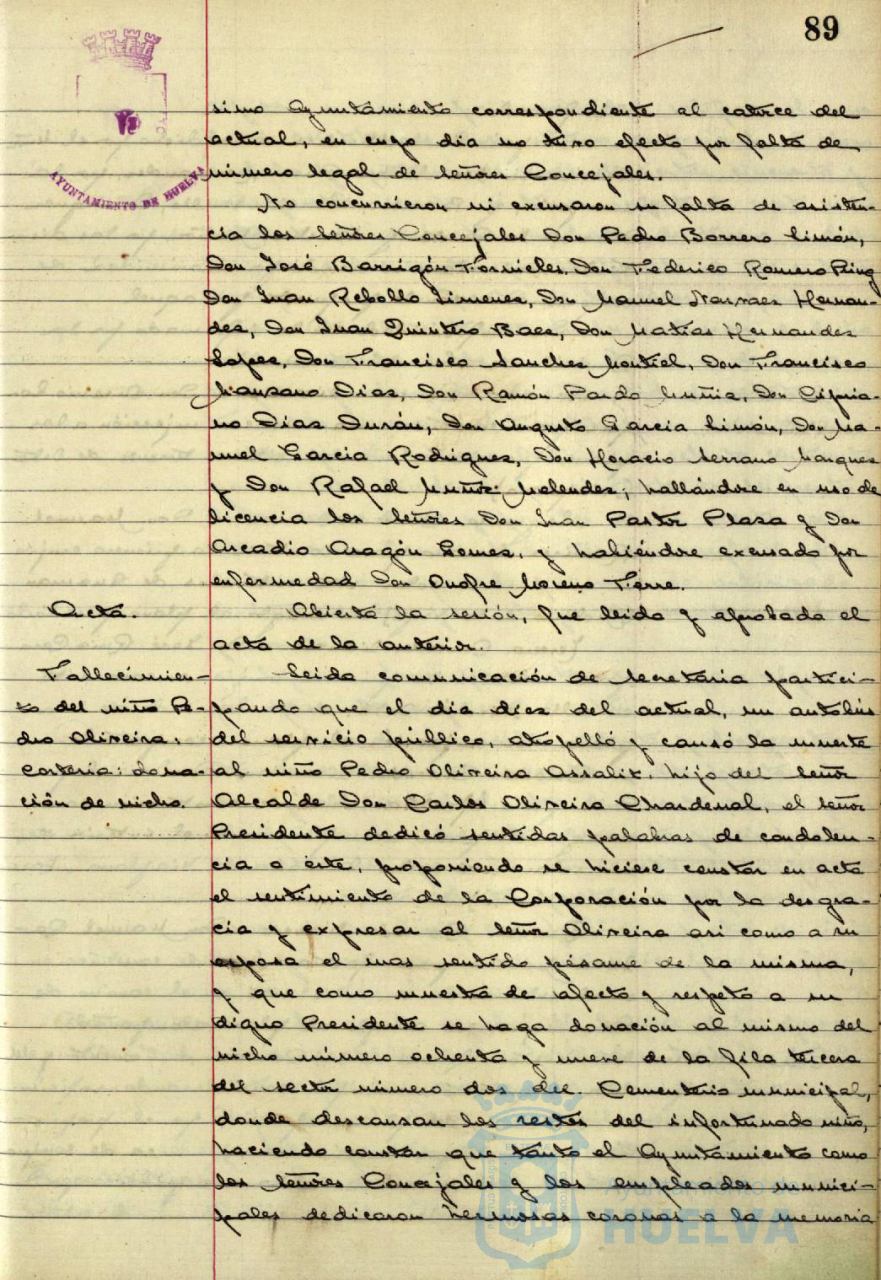 89
AYUNTAMIENTO DE HUELVA
simo Ayuntamiento correspondiente al catorce del
actual, en cuyo dia no tuvo efecto por falta de
número legal de Señores Concejales.
No concurrieron ni excusaron su falta de asisten-
cia los Señores Concejales Don Pedro Borrero Limón,
Don José Barrigón Fornieles, Don Federico Romero Ping
Don Juan Rebollo Jimenez, Don Manuel Narvaez Hernan-
dez, Don Juan Quintero Baez, Don Matias Hernandez
Lopez, Don Francisco Sanchez Montiel, Don Francisco
Manzano Diaz, Don Ramón Pardo Muñiz, Don Cipria-
no Diaz Durán, Don Augusto Garcia Limón, Don Ma-
nuel Garcia Rodriguez, Don Horacio Serrano Marquez
y Don Rafael Muñoz Melendez; hallándose en uso de
licencia los Señores Don Juan Pastor Plaza y Don
Arcadio Aragón Gomez, y habiéndose excusado por
enfermedad Don Onofre Moreno Ferre.
Acta.
Abierta la sesión, fue leida y aprobada el
acta de la anterior.
Fallecimien-
to del niño Pe-
dro Oliveira:
corteria: dona-
ción de nicho.
Leida comunicación de Secretaria partici-
pando que el dia diez del actual, un autobús
del servicio público, atropelló y causó la muerte
al niño Pedro Oliveira Assalit, hijo del Señor
Alcalde Don Carlos Oliveira Chardenal, el Señor
Presidente dedicó sentidas palabras de condolen-
cia a éste, proponiendo se hiciese constar en acta
el sentimiento de la Corporación por la desgra-
cia y expresar al Señor Oliveira asi como a su
esposa el mas sentido pésame de la misma,
y que como muestra de afecto y respeto a su
digno Presidente se haga donación al mismo del
nicho número ochenta y nueve de la fila tercera
del sector número dos del Cementerio municipal,
donde descansan los restos del infortunado niño,
haciendo constar que tanto el Ayuntamiento como
los Señores Concejales y los empleados munici-
pales dedicaron hermosas coronas a la memoria
Ayuntamiento
HUELVA